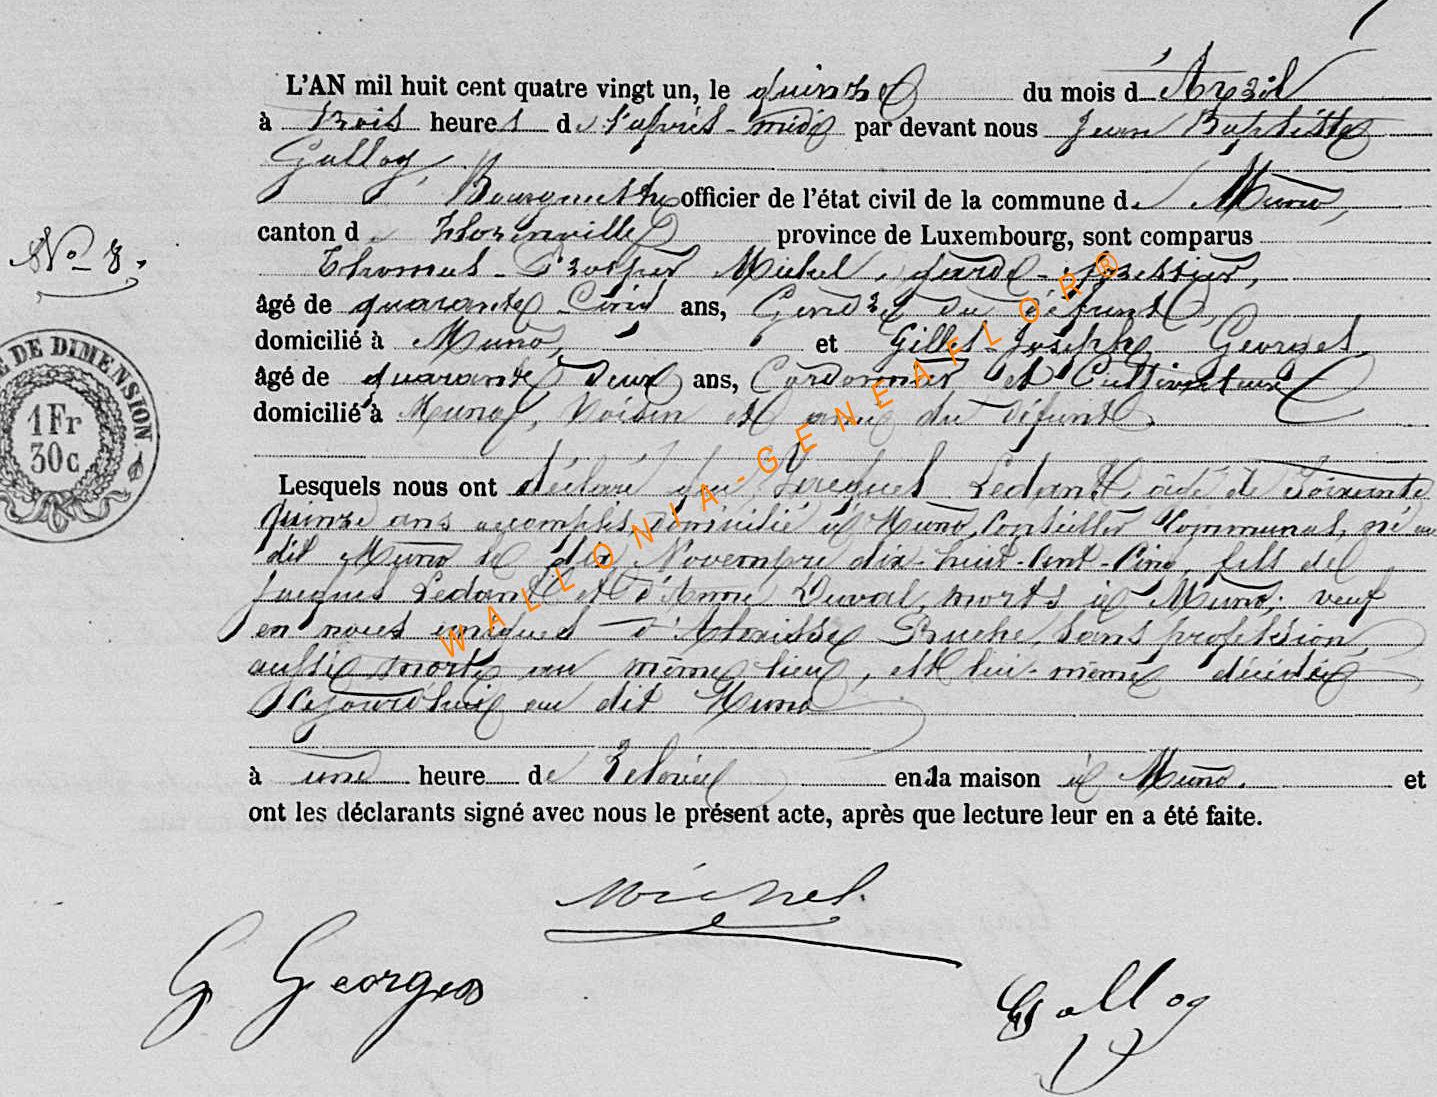 L'AN mil huit cent quatre vingt un, le quinze du mois d'Avril
à trois heures de l'après-midi par devant nous Jean Baptiste
Galloy,
Bourgmestre officier de l'état civil de la commune de Muno,
canton de Florenville province de Luxembourg, sont comparus
N° 8.
Thomas-Prosper Michel, garde-forestier,
âgé de quarante-cinq ans, Gendre du défunt,
domicilié à Muno, et Gilles-Joseph Georges,
âgé de quarante deux ans, Cordonnier et Cultivateur
domicilié à Muno, voisin et ami du défunt
E DE DIMENSION
1 Fr
30c
Lesquels nous ont déclaré que Jacques Ledant, âgé de soixante
quinze ans accomplis, domicilié à Muno, Conseiller Communal, né au
dit Muno le dix Novembre dix-huit-cent-cinq, fils de
Jacques Ledant et d'Anne Duval, morts à Muno; veuf
en noces d'Aloïsse Pruche, sans profession,
aussi morte au même lieu, est lui-même décédé
aujourd'hui au dit Muno
à une heure de relevée en la maison à Muno. et
ont les déclarants signé avec nous le présent acte, après que lecture leur en a été faite.
Michel
G Georges
Galloy
WALLONIA-GENEAFLOR®